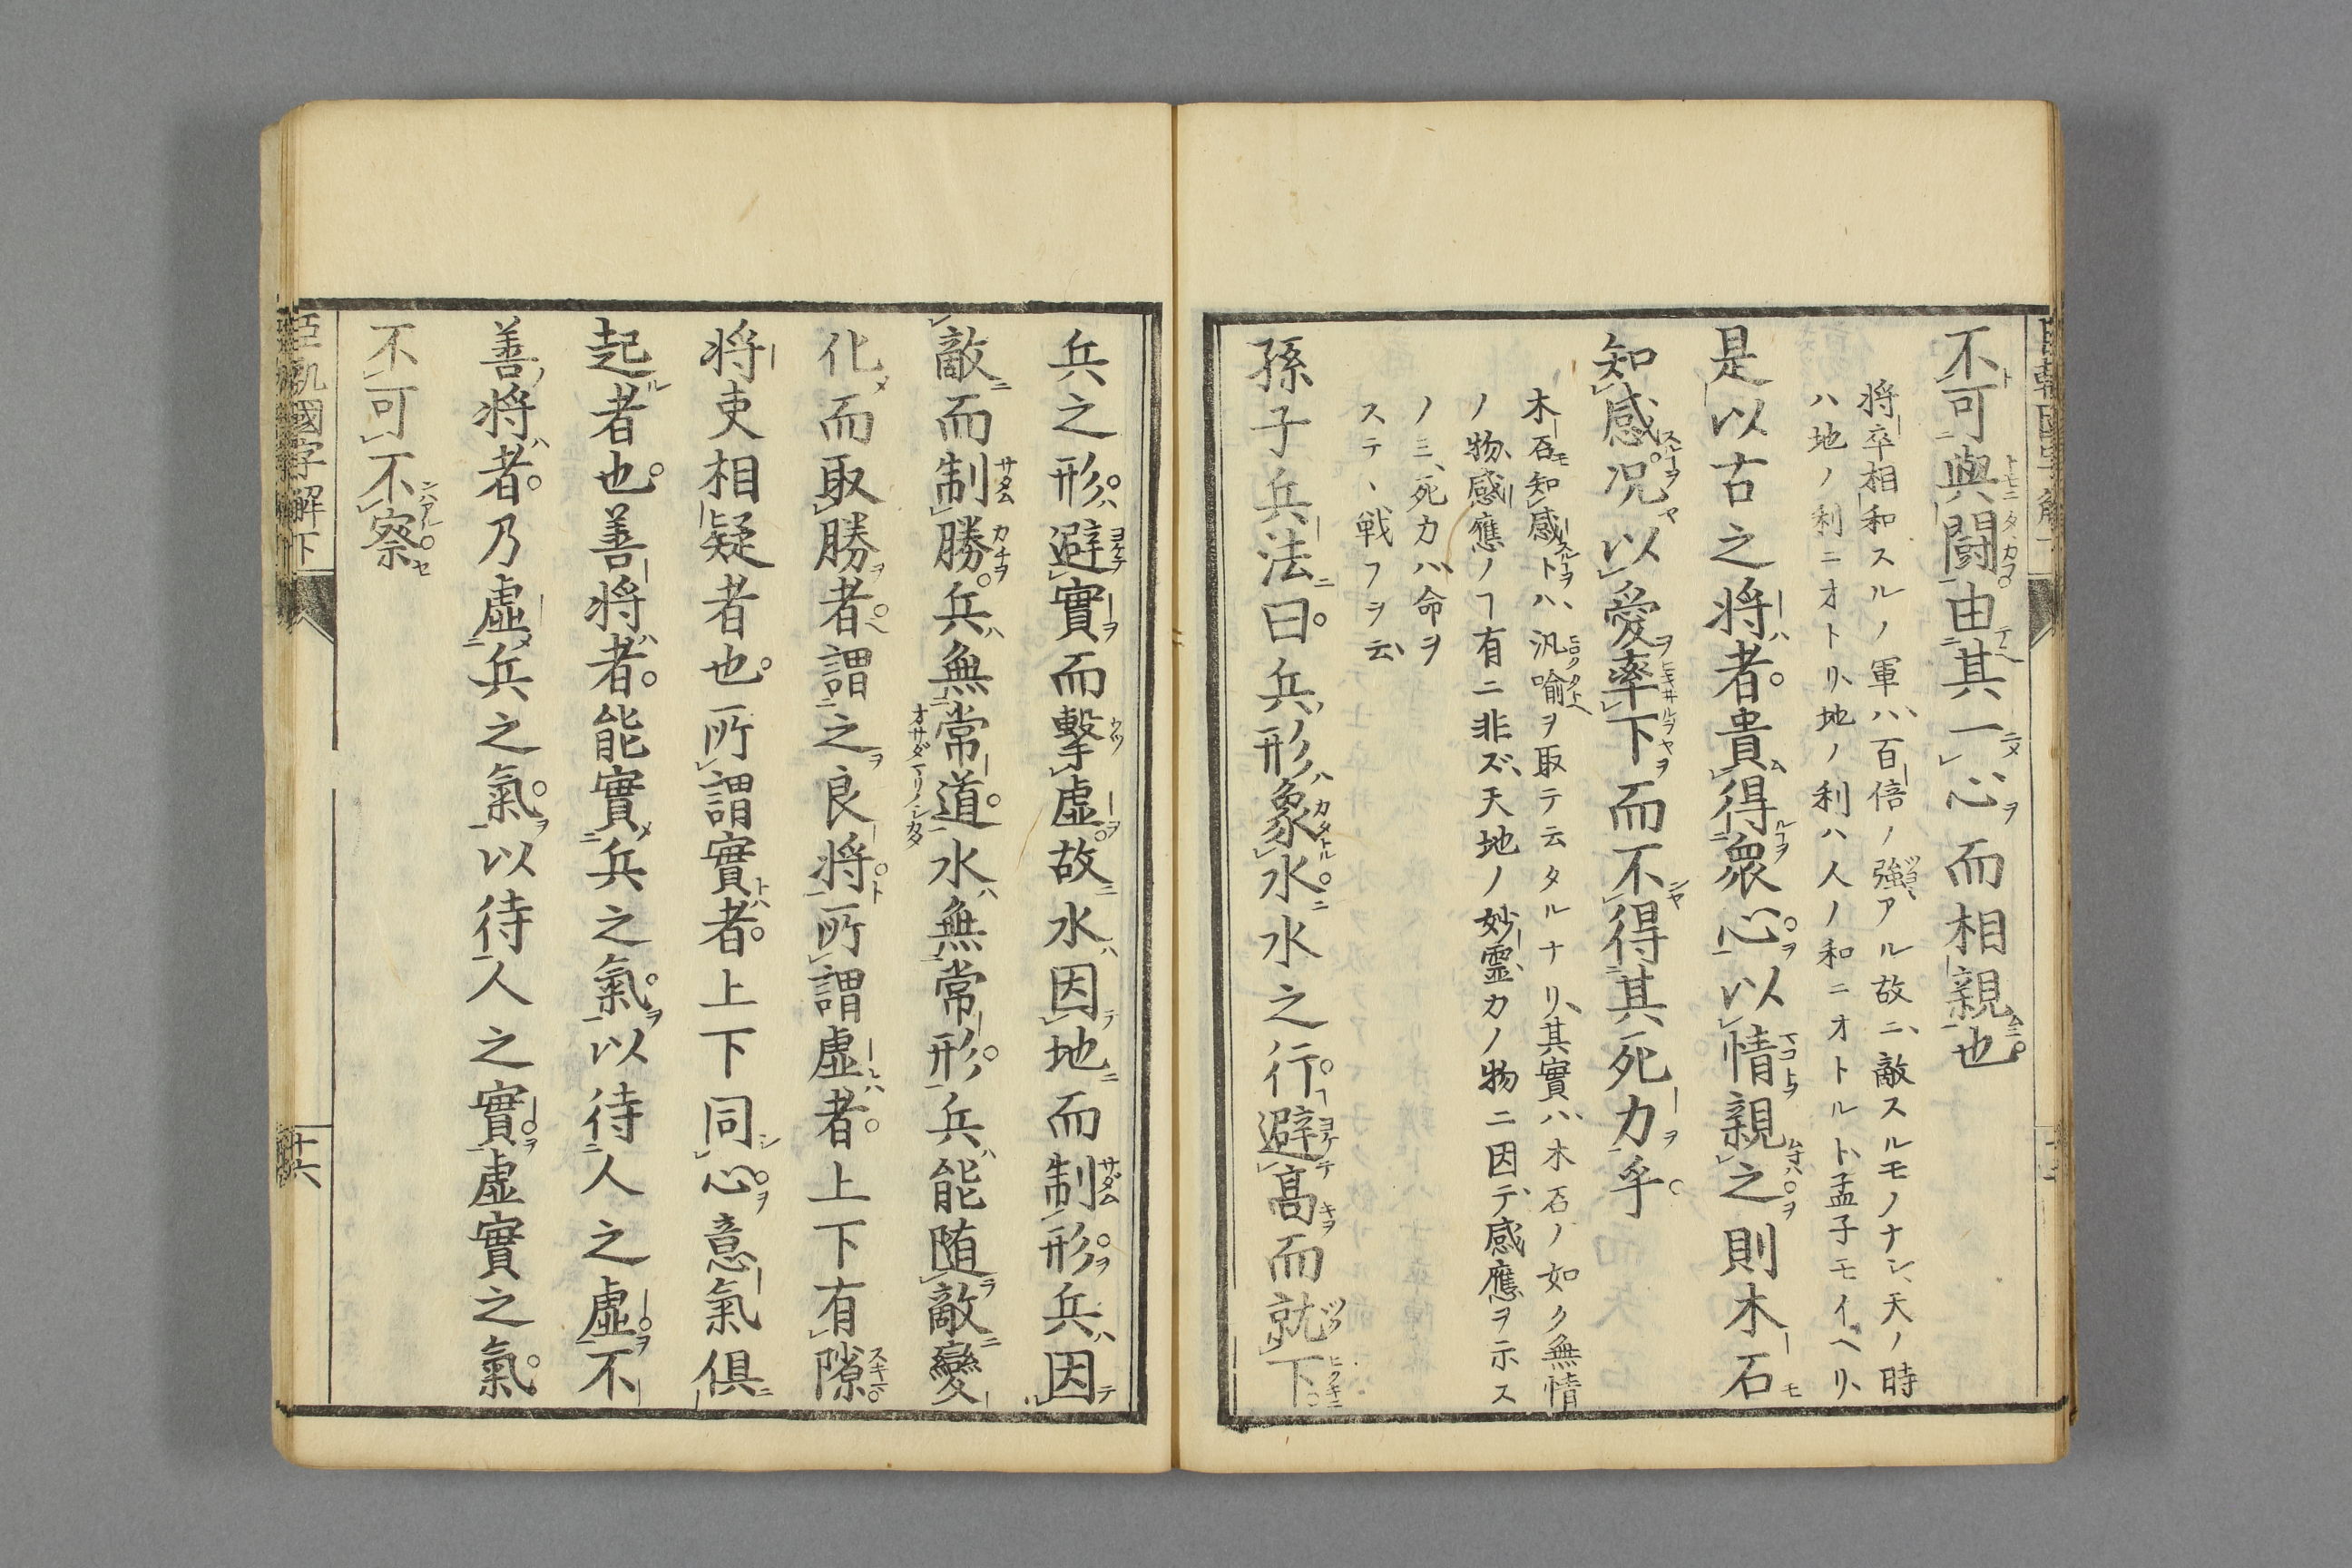 不可與闘由其一心而相親也
將卒相和スルノ軍ハ、百倍ノ強アル故ニ、敵スルモノナシ、天ノ時
ハ地ノ利ニオトリ、地ノ利ハ人ノ和ニオトルト、孟子モイヘリ、
是以古之将者。貴得衆心以情親之則木石
知感。况以愛率下而不得其死力乎。
木石知感スルヿヲトハ、汎喻ヲ取テ云タルナリ、其實ハ、木石ノ如ク無情
ノ物、感應ノヿ有ニ非ズ、天地ノ妙靈カノ物ニ因テ、感應ヲ示ス
ノミ、死力ハ命ヲ
ステ、戦フヲ云、
孫子兵法曰。兵形象水。水之行。避高而就下。
兵之形。避實而擊虛。故水因地而制形。兵因
敵而制勝。兵無常道。水無常形。兵能随敵變
化而取勝者。謂之良将。所謂虛者。上下有隙。
将吏相疑者也。所謂實者。上下同心。意氣俱
起者也。善将者。能實兵之氣。以待人之虛。不
善将者。乃虛兵之氣。以待人之實。虛實之氣。
不可不察。
國字解下
十六